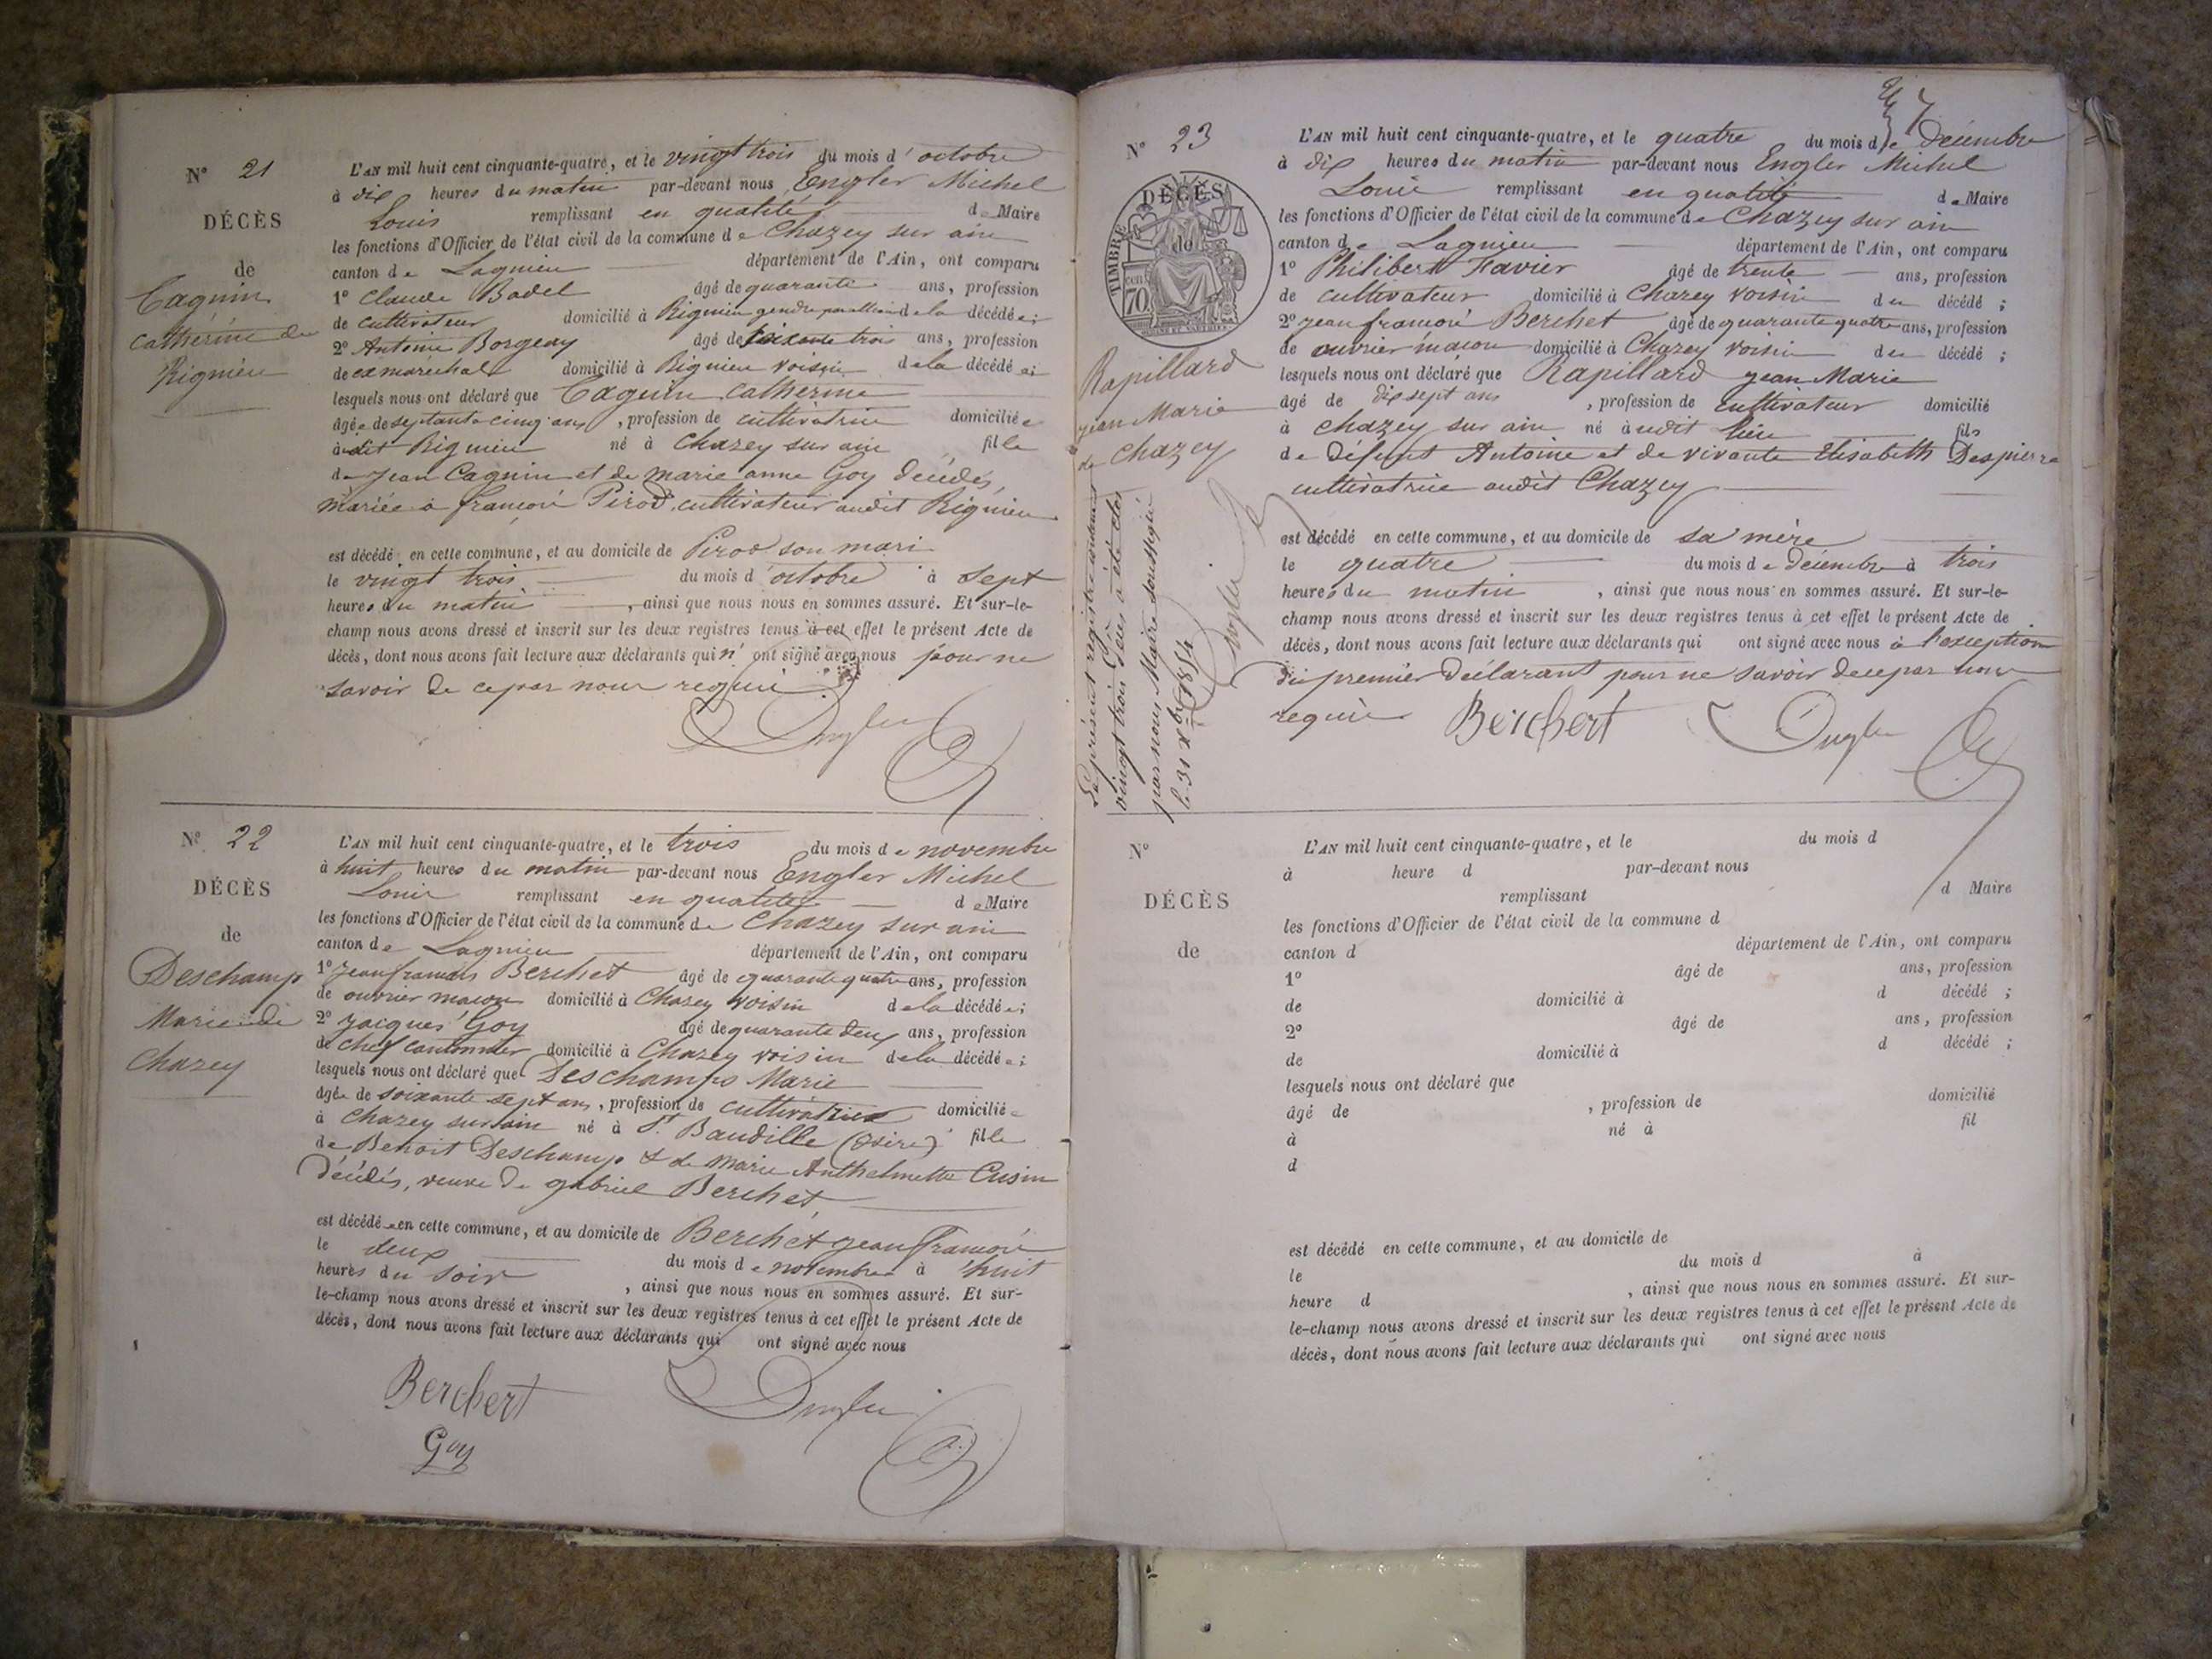 N° 21
DÉCÈS
de
Caguin
catherine de
Rignieu
L'AN mil huit cent cinquante-quatre, et le vingt trois du mois d'octobre
à dix heures du matin par-devant nous Engler Michel
Louis remplissant en qualité de Maire
les fonctions d'Officier de l'état civil de la commune de Chazey sur ain
canton de Lagnieu département de l'Ain, ont comparu
1° Claude Badel âgé de quarante ans, profession
de cultivateur domicilié à Rignieu gendre par alliance de la décédée;
2° Antoine Borgeay âgé de soixante trois ans, profession
de ex maréchal domicilié à Rignieu voisin de la décédée;
lesquels nous ont déclaré que Caguin Catherine
âgée de septante cinq ans, profession de cultivatrice domiciliée
audit Rignieu né à Chazey sur ain fille
de Jean Caguin et de marie anne Goy décédés,
mariée à françois Pirod, cultivateur audit Rignieu
est décédé en cette commune, et au domicile de Pirod son mari
le vingt trois du mois d'octobre à sept
heures du matin, ainsi que nous nous en sommes assuré. Et sur-le-
champ nous avons dressé et inscrit sur les deux registres tenus à cet effet le présent Acte de
décès, dont nous avons fait lecture aux déclarants qui n'ont signé avec nous pour ne
savoir de ce par nous requis
Engler
N° 22
DÉCÈS
de
Deschamp
Marie de
Chazey
L'AN mil huit cent cinquante-quatre, et le trois du mois de novembre
à huit heures du matin par-devant nous Engler Michel
Louis remplissant en qualité de Maire
les fonctions d'Officier de l'état civil de la commune de Chazey sur ain
canton de Lagnieu département de l'Ain, ont comparu
1° Jean francois Berchet âgé de quarante quatre ans, profession
de ouvrier macon domicilié à Chazey voisin de la décédée;
2° Jacques Goy âgé de quarante deux ans, profession
de chef cantonnier domicilié à Chazey voisin de la décédée;
lesquels nous ont déclaré que Deschamps Marie
âgée de soixante sept ans, profession de cultivatrice domiciliée
à Chazey sur ain né à St Baudille (Isère) fille
de Benoit Deschamp & de Marie Anthelmette Cusin
décédés, veuve de gabriel Berchet,
est décédée en cette commune, et au domicile de Berchet jean françois
le deux du mois de novembre à huit
heures du soir, ainsi que nous nous en sommes assuré. Et sur-
le-champ nous avons dressé et inscrit sur les deux registres tenus à cet effet le présent Acte de
décès, dont nous avons fait lecture aux déclarants qui ont signé avec nous
Berchert
Engler
Goy
7
N° 23
TIMBRE
70
DÉCÈS
de
Rapillard
jean Marie
de Chazey
L'AN mil huit cent cinquante-quatre, et le quatre du mois de Décembre
à dix heures du matin par-devant nous Engler Michel
Louis remplissant en qualité de Maire
les fonctions d'Officier de l'état civil de la commune de Chazey sur ain
canton de Lagnieu département de l'Ain, ont comparu
1° Philibert Favier âgé de trente ans, profession
de cultivateur domicilié à Chazey voisin du décédé;
2° jean françois Berchet âgé de quarante quatre ans, profession
de ouvrier macon domicilié à Chazey voisin du décédé;
lesquels nous ont déclaré que Rapillard jean Marie
âgé de dix sept ans, profession de cultivateur domicilié
à Chazey sur ain né audit lieu fils
de Défunt Antoine et de vivante Elisabeth Despierre
cultivatrice audit Chazey
est décédé en cette commune, et au domicile de sa mère
le quatre du mois de Décembre à trois
heures du matin, ainsi que nous nous en sommes assuré. Et sur-le-
champ nous avons dressé et inscrit sur les deux registres tenus à cet effet le présent Acte de
décès, dont nous avons fait lecture aux déclarants qui ont signé avec nous à l'exception
du premier déclarant pour ne savoir de ce par nous
requis Berchert Engler
Le présent registre contenant
vingt trois Décès a été clos
par nous Maire soussigné
le 31 Xbre 1854
Engler
N°
DÉCÈS
de
L'AN mil huit cent cinquante-quatre, et le du mois d
à heure d par-devant nous
remplissant d Maire
les fonctions d'Officier de l'état civil de la commune d
canton d département de l'Ain, ont comparu
1° âgé de ans, profession
de domicilié à d décédé ;
2° âgé de ans, profession
de domicilié à d décédé ;
lesquels nous ont déclaré que
âgé de , profession de domicilié
à né à fil
d
est décédé en cette commune, et au domicile de
le du mois d à
heure d , ainsi que nous nous en sommes assuré. Et sur-
le-champ nous avons dressé et inscrit sur les deux registres tenus à cet effet le présent Acte de
décès, dont nous avons fait lecture aux déclarants qui ont signé avec nous